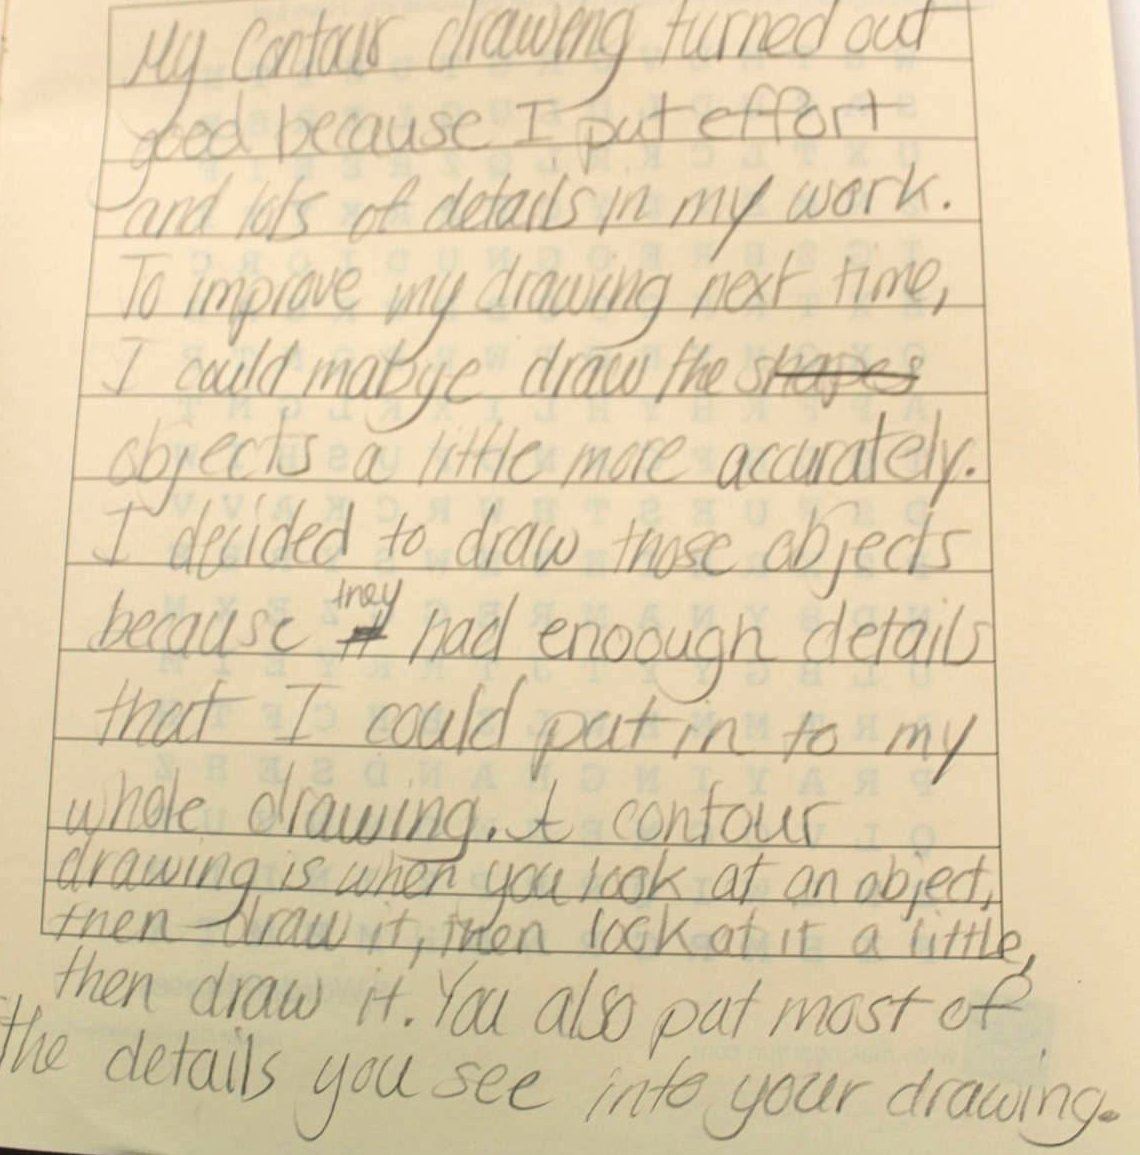 My Contour drawing turned out
good because I put effort
and lots of details in my work.
To improve my drawing next time,
I could mabye draw the shapes
objects a little more accurately.
I decided to draw those objects
because they had enoough details
that I could put in to my
whole drawing. A contour
drawing is when you look at an object,
then draw it, then look at it a little,
then draw it. You also put most of
the details you see into your drawing.